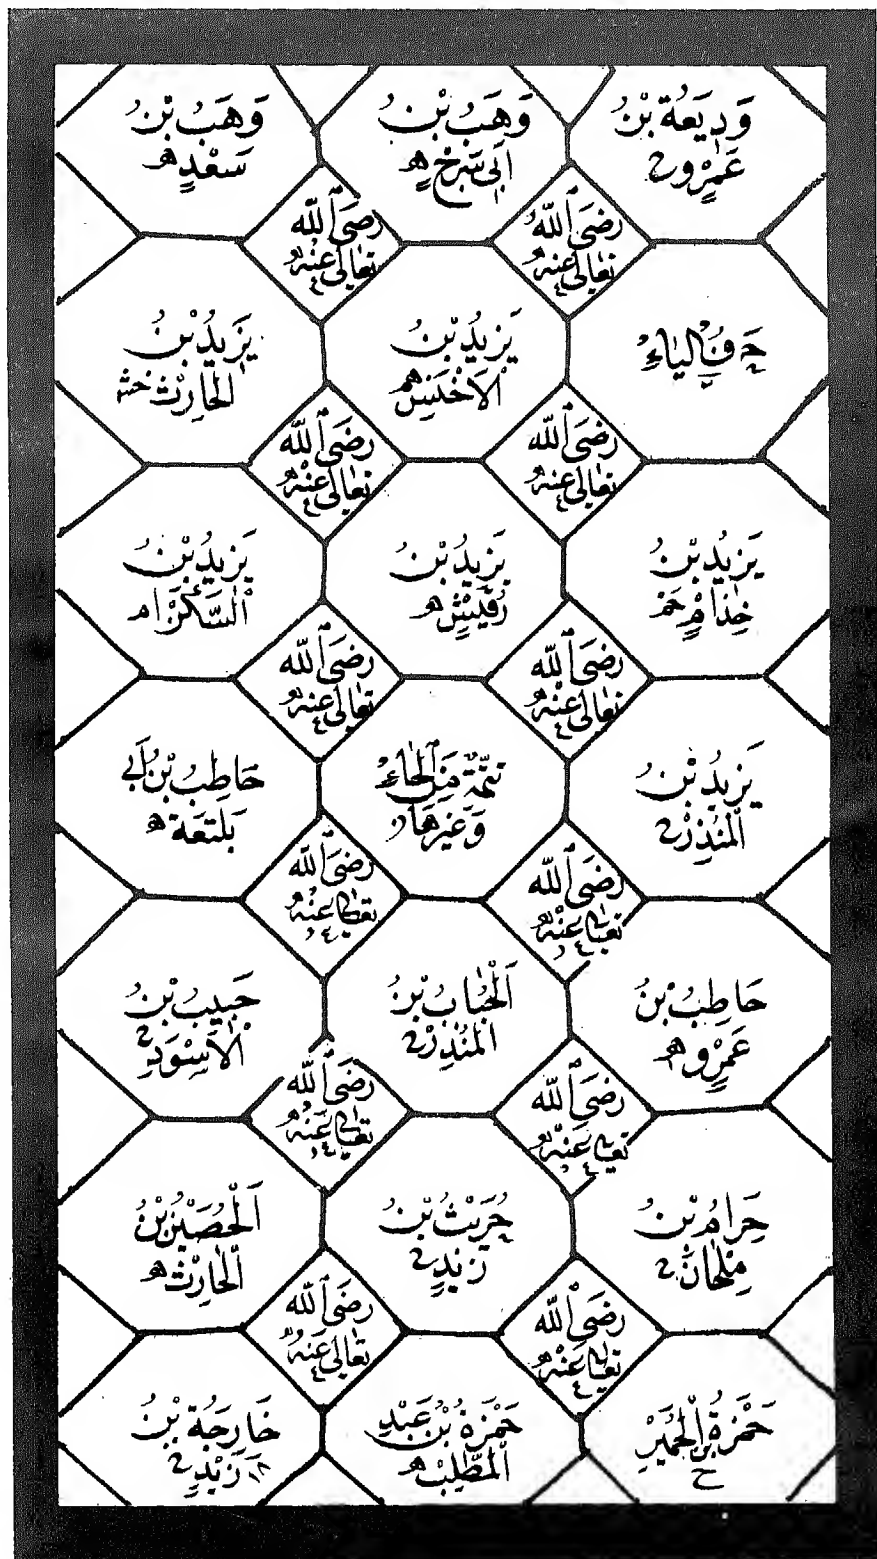 وَدِيعَةُ بْنُ
عَمْرٍو
وَهَبُ بْنُ
اَبِى سَرْحٍ ه
وَهَبُ بْنُ
سَعْدٍ ه
رَضِىَ اللّٰه
تَعَالٰى عَنْهُ
رَضِىَ اللّٰه
تَعَالٰى عَنْهُ
الْيَاءِ
يَزِيدُ بْنُ
الْاَخْنَسِ
يَزِيدُ بْنُ
الْحَارِثِ
رَضِىَ اللّٰه
تَعَالٰى عَنْهُ
رَضِىَ اللّٰه
تَعَالٰى عَنْهُ
يَزِيدُ بْنُ
خِذَامٍ
يَزِيدُ بْنُ
رُقَيْشٍ ه
يَزِيدُ بْنُ
السَّكَنْ
رَضِىَ اللّٰه
تَعَالٰى عَنْهُ
رَضِىَ اللّٰه
تَعَالٰى عَنْهُ
يَزِيدُ بْنُ
الْمُنْذِرْ
تَتِمَّةٌ مِنَ الْحَاءِ
وَغَيْرِهَا
حَاطِبُ بْنُ اَبِى
بَلْتَعَة ه
رَضِىَ اللّٰه
تَعَالٰى عَنْهُ
رَضِىَ اللّٰه
تَعَالٰى عَنْهُ
حَاطِبُ بْنُ
عَمْرٍو ه
اَلْحُبَابُ بْنُ
الْمُنْذِرْ
حَبِيبُ بْنُ
الْاَسْوَدِ
رَضِىَ اللّٰه
تَعَالٰى عَنْهُ
رَضِىَ اللّٰه
تَعَالٰى عَنْهُ
حَرَامُ بْنُ
مِلْحَانَ
حُرَيْثُ بْنُ
زَيْدٍ
اَلْحُصَيْنُ بْنُ
الْحَارِثِ ه
رَضِىَ اللّٰه
تَعَالٰى عَنْهُ
رَضِىَ اللّٰه
تَعَالٰى عَنْهُ
حَمْزَةُ بْنُ الْحُمَيِّرْ
ح
حَمْزَةُ بْنُ عَبْدِ
الْمُطَّلِبْ ه
خَارِجَةُ بْنُ
زَيْدٍ ١٨